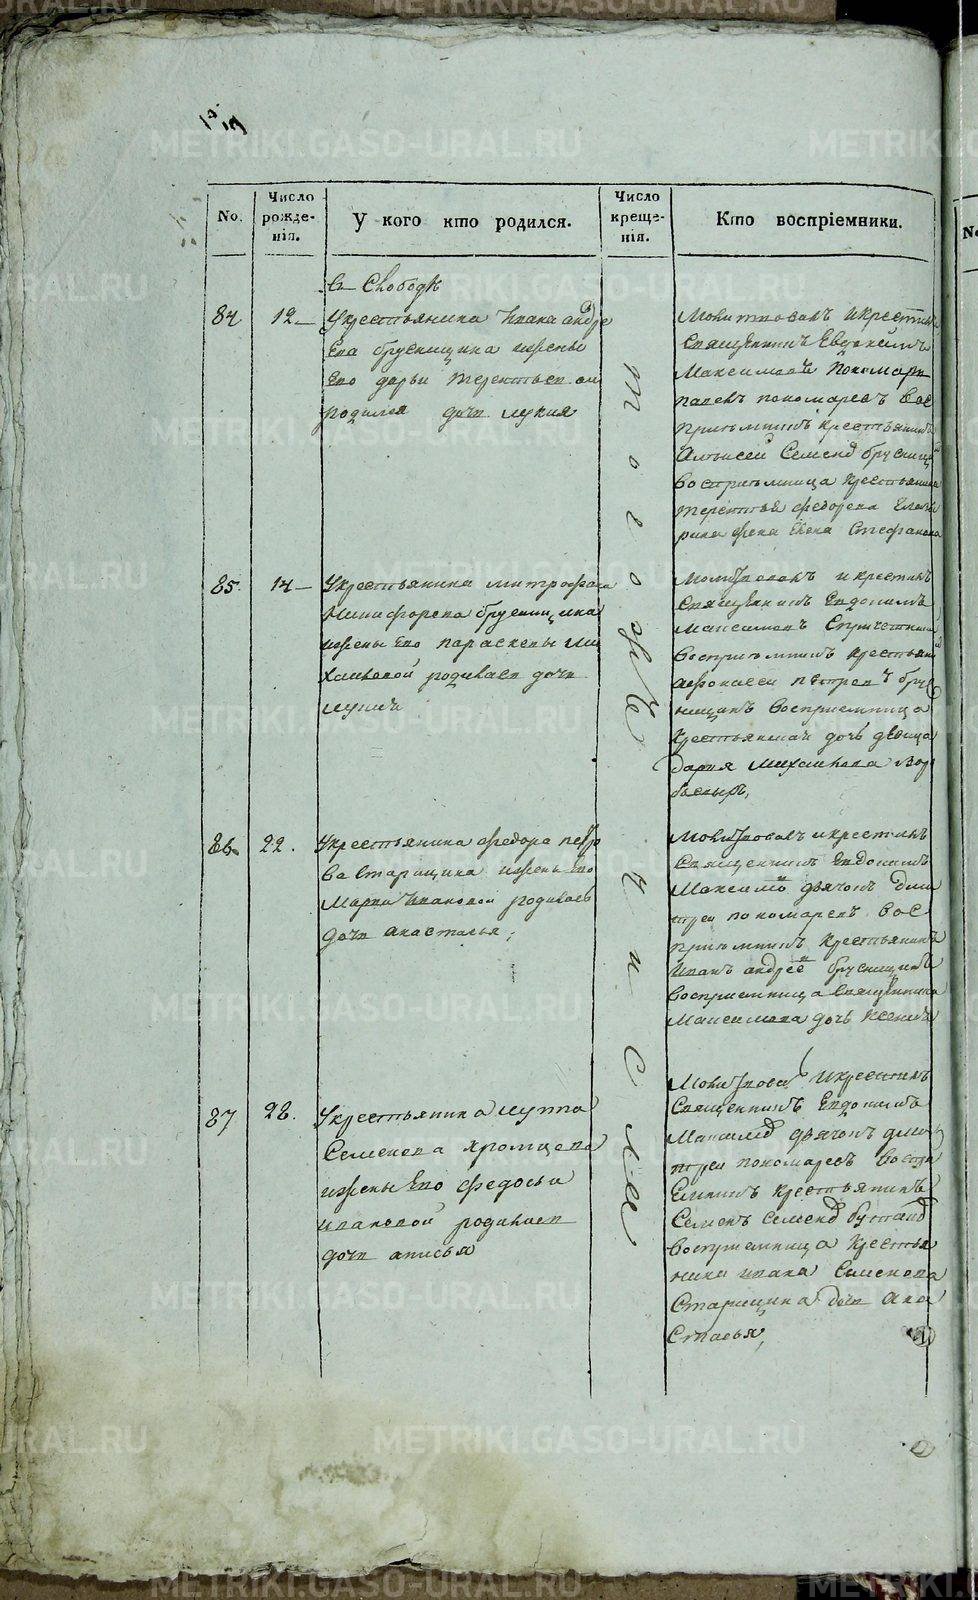 No.
Число рожде-нія.
У кого кто родился.
Число креще-нія.
Кто воспріемники.
в Слободѣ
84
12
Укрестьянина ивана андре
ева брусницина ижены
Его дарьи терентьевои
родился дочь лукия
Молитвовалъ икрестилъ
Священникъ Евдокимъ
Максимовъ Пономарь
павелъ пономаревъ вос
приемникъ крестьянинъ
Алексеи Семено брусниц
воспрiемница крестьянина
терентья федорова
жена Стефанова
того же числа
85.
14
Укрестьянина митрофана
Никифорова брусницина
ижены Его параскевы ми
хаиловой родилась дочь
лукия
Молитвовалъ и крестилъ
Священникъ Евдокимъ
Максимовъ Спричетники
воспрiемникъ крестьяни
афонасеи петровъ брус
ницынъ восприемница
крестьянская дочь девица
дария михаилова
86.
22.
Укрестьянина федора петро
ва Старицина ижены Его
Марьи Ивановои родилась
дочь анастасья;
Молитвовалъ икрестилъ
Священникъ Евдокимъ
Максимо дьячокъ дми
треи пономаревъ вос
приемникъ крестьянинъ
Иванъ андрее брусницинъ
восприемница Священника
Максимова дочь Ксения
87
28.
Укрестьянина луппа
Семенова Хромцова
ижены Его федосьи
ивановой родилась
дочь анисья
Молитвовалъ икрестилъ
Священникъ Евдокимъ
Максимо дьячокъ дми
треи пономаревъ воспри
емникъ крестьянинъ
Семенъ Семено
восприемница крестья
нина ивана Семенова
Старицина дочь Ана
стасья,
METRIKI.GASO-URAL.RU